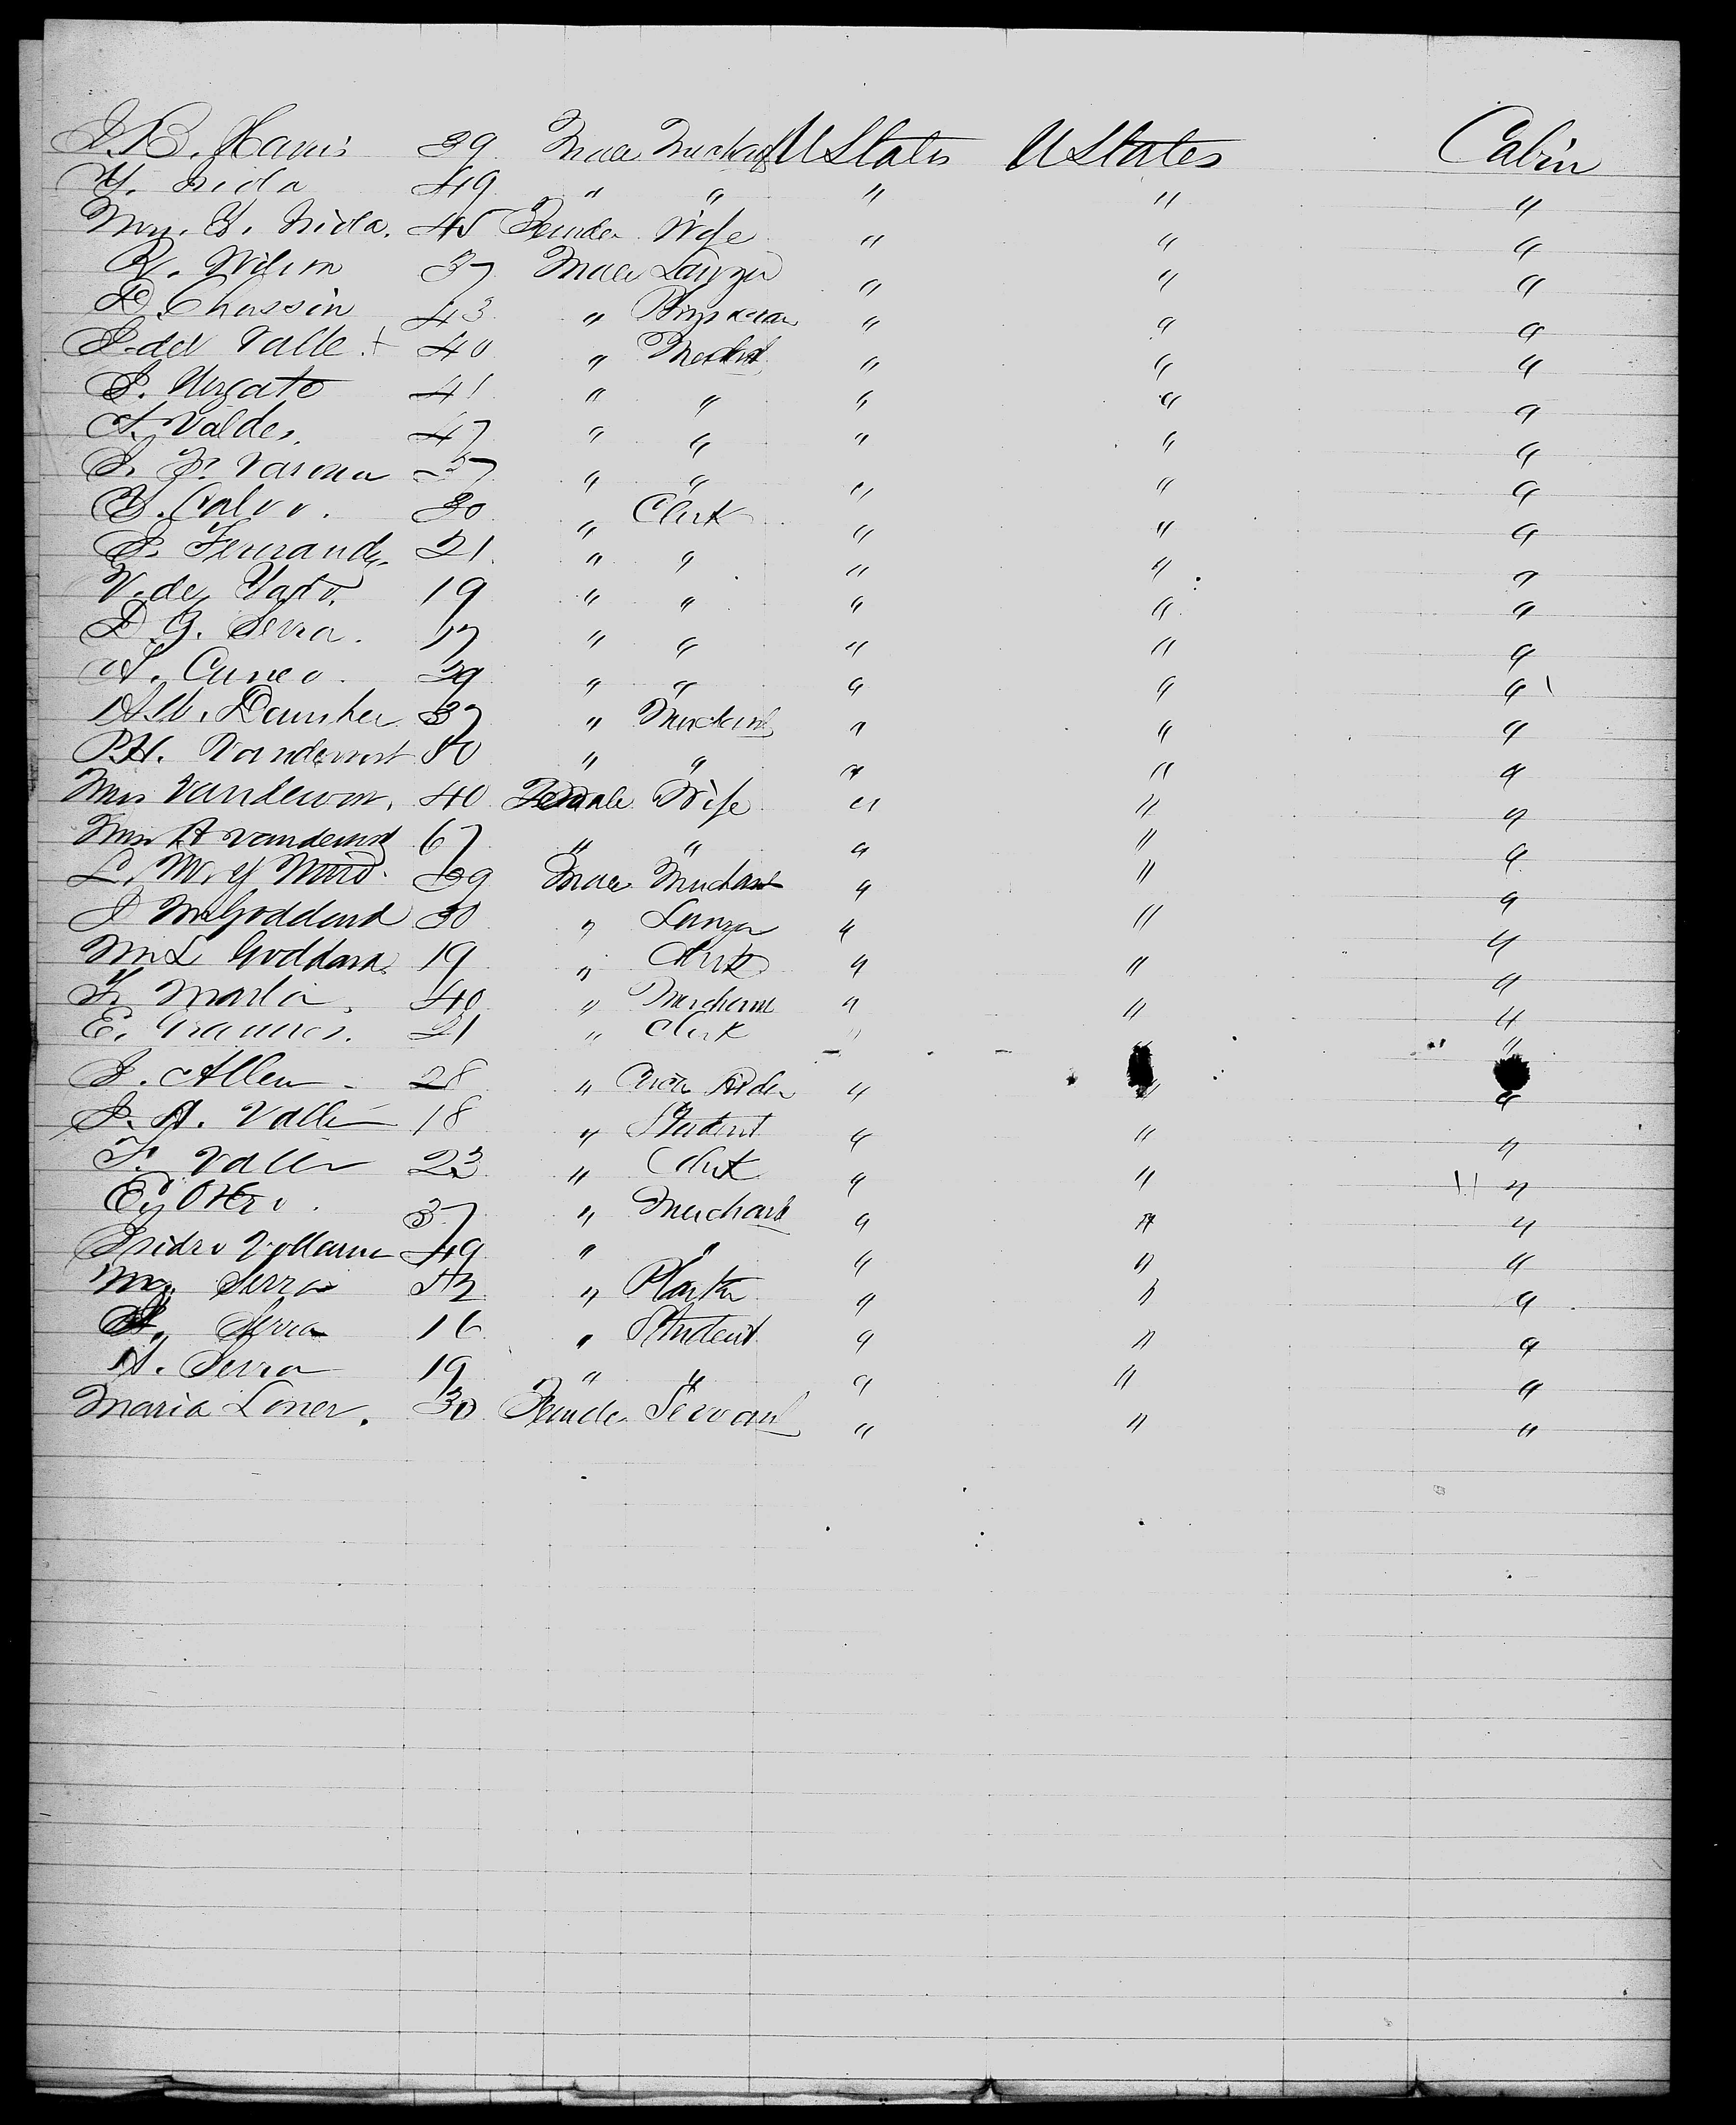 J. B. Harris 39 Male Merchant U States U States Cabin
Y. Nida 49 " " " " "
Mrs. Y. Nida. 45 Female Wife " " "
R. Wilson 37 Male Lawyer " " "
D. Chassin 43 " Physician " " "
J. del Valle + 40 " Mercht " " "
J. Ungato 41 " " " " "
A. Valdes. 47 " " " " "
J. F. Varona 37 " " " " "
Y. Calvo. 30 " Clerk " " "
J. Fernandz. 21 " " " " "
V. de Yato. 19 " " " " "
D. G. Serra. 17 " " " " "
A. Cuneo. 29 " " " " "
37 " Merchant " " "
P. H. Vandervort 50 " " " " "
Mrs Vandervort. 40 Female Wife " " "
Mrs A Vandervort 67 " " " " "
39 Male Merchant " " "
J McGoddard 30 " Lawyer " " "
M L Goddard. 19 " Clerk " " "
F. Martin. 40 " Merchant " " "
E. 21 " Clerk " " "
J. Allen 28 " Circus Rider " " "
J. A. Valle 18 " Student " " "
F. Valle 23 " Clerk " " "
E. Otero. 37 " Merchant " " "
Isidro 49 " " " " "
Serra " Planter " " "
Serra 16 " Student " " "
A. Serra 19 " " " " "
Maria Loner. 30 Female Servant " " "